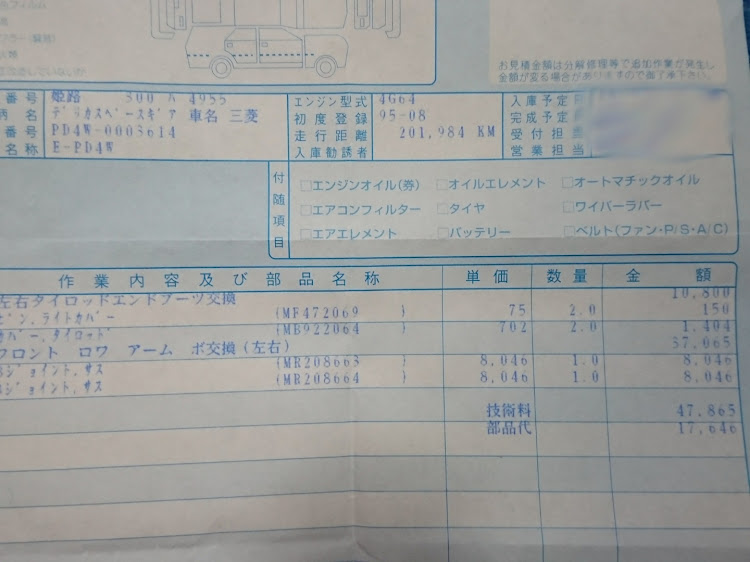 お見積金額は分解修理等で追加作業が発生し
金額が変る場合がありますので御了承下さい。
番号 姫路 300 4955
デリカスペースギア 車名 三菱
番号 PD4W-0003614
名称 E-PD4W
エンジン型式 4G64
初度登録 95-08
走行距離 201,984 KM
入庫勧誘者
入庫予定
完成予定
受付担
営業担当
付随項目
□エンジンオイル(券) □オイルエレメント □オートマチックオイル
□エアコンフィルター □タイヤ □ワイパーラバー
□エアエレメント □バッテリー □ベルト(ファン・P/S・A/C)
作業内容及び部品名称 単価 数量 金額
左右タイロッドエンドブーツ交換 10,800
ピン,ライトカバー (MF472069 ) 75 2.0 150
カバー,タイロッド (MB922064 ) 702 2.0 1,404
フロント ロワ アーム ボ交換(左右) 37,065
Bジョイント,サス (MR208663 ) 8,046 1.0 8,046
Bジョイント,サス (MR208664 ) 8,046 1.0 8,046
技術料 47,865
部品代 17,646